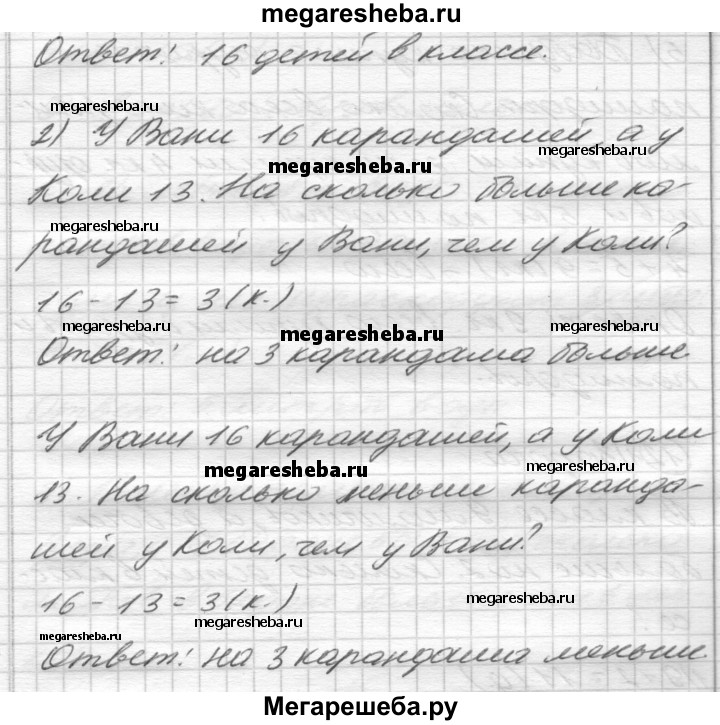 megaresheba.ru
Ответ: 16 детей в классе.
megaresheba.ru
2) У Вани 16 карандашей, а у
megaresheba.ru
megaresheba.ru
Коли 13. На сколько больше ка-
megaresheba.ru
рандашей у Вани, чем у Коли?
16 - 13 = 3 (к.)
megaresheba.ru
megaresheba.ru
megaresheba.ru
Ответ: на 3 карандаша больше
У Вани 16 карандашей, а у Коли
megaresheba.ru
megaresheba.ru
13. На сколько меньше каранда-
шей у Коли, чем у Вани?
16 - 13 = 3 (к.)
megaresheba.ru
megaresheba.ru
megaresheba.ru
Ответ: на 3 карандаша меньше
Мегарешеба.ру